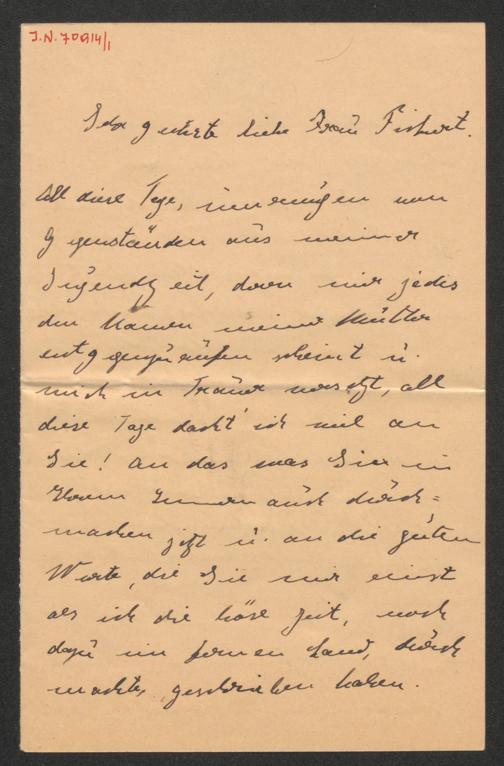 J.N. 70914/1
Sehr geehrte liebe Frau Fichert.
All diese Tage, inmitten von
Gegenständen aus meiner
Jugendzeit, davon mir jedes
den Namen meiner Mutter
entgegenzurufen scheint u.
mich in Trauer versetzt, all
diese Tage dacht' ich viel an
Sie! An das was Sie in
Ihrem Innern auch durch=
machen jetzt u. an die guten
Worte, die Sie mir einst
als ich die böse Zeit, noch
dazu im fernen Land, durch
machte, geschrieben haben.